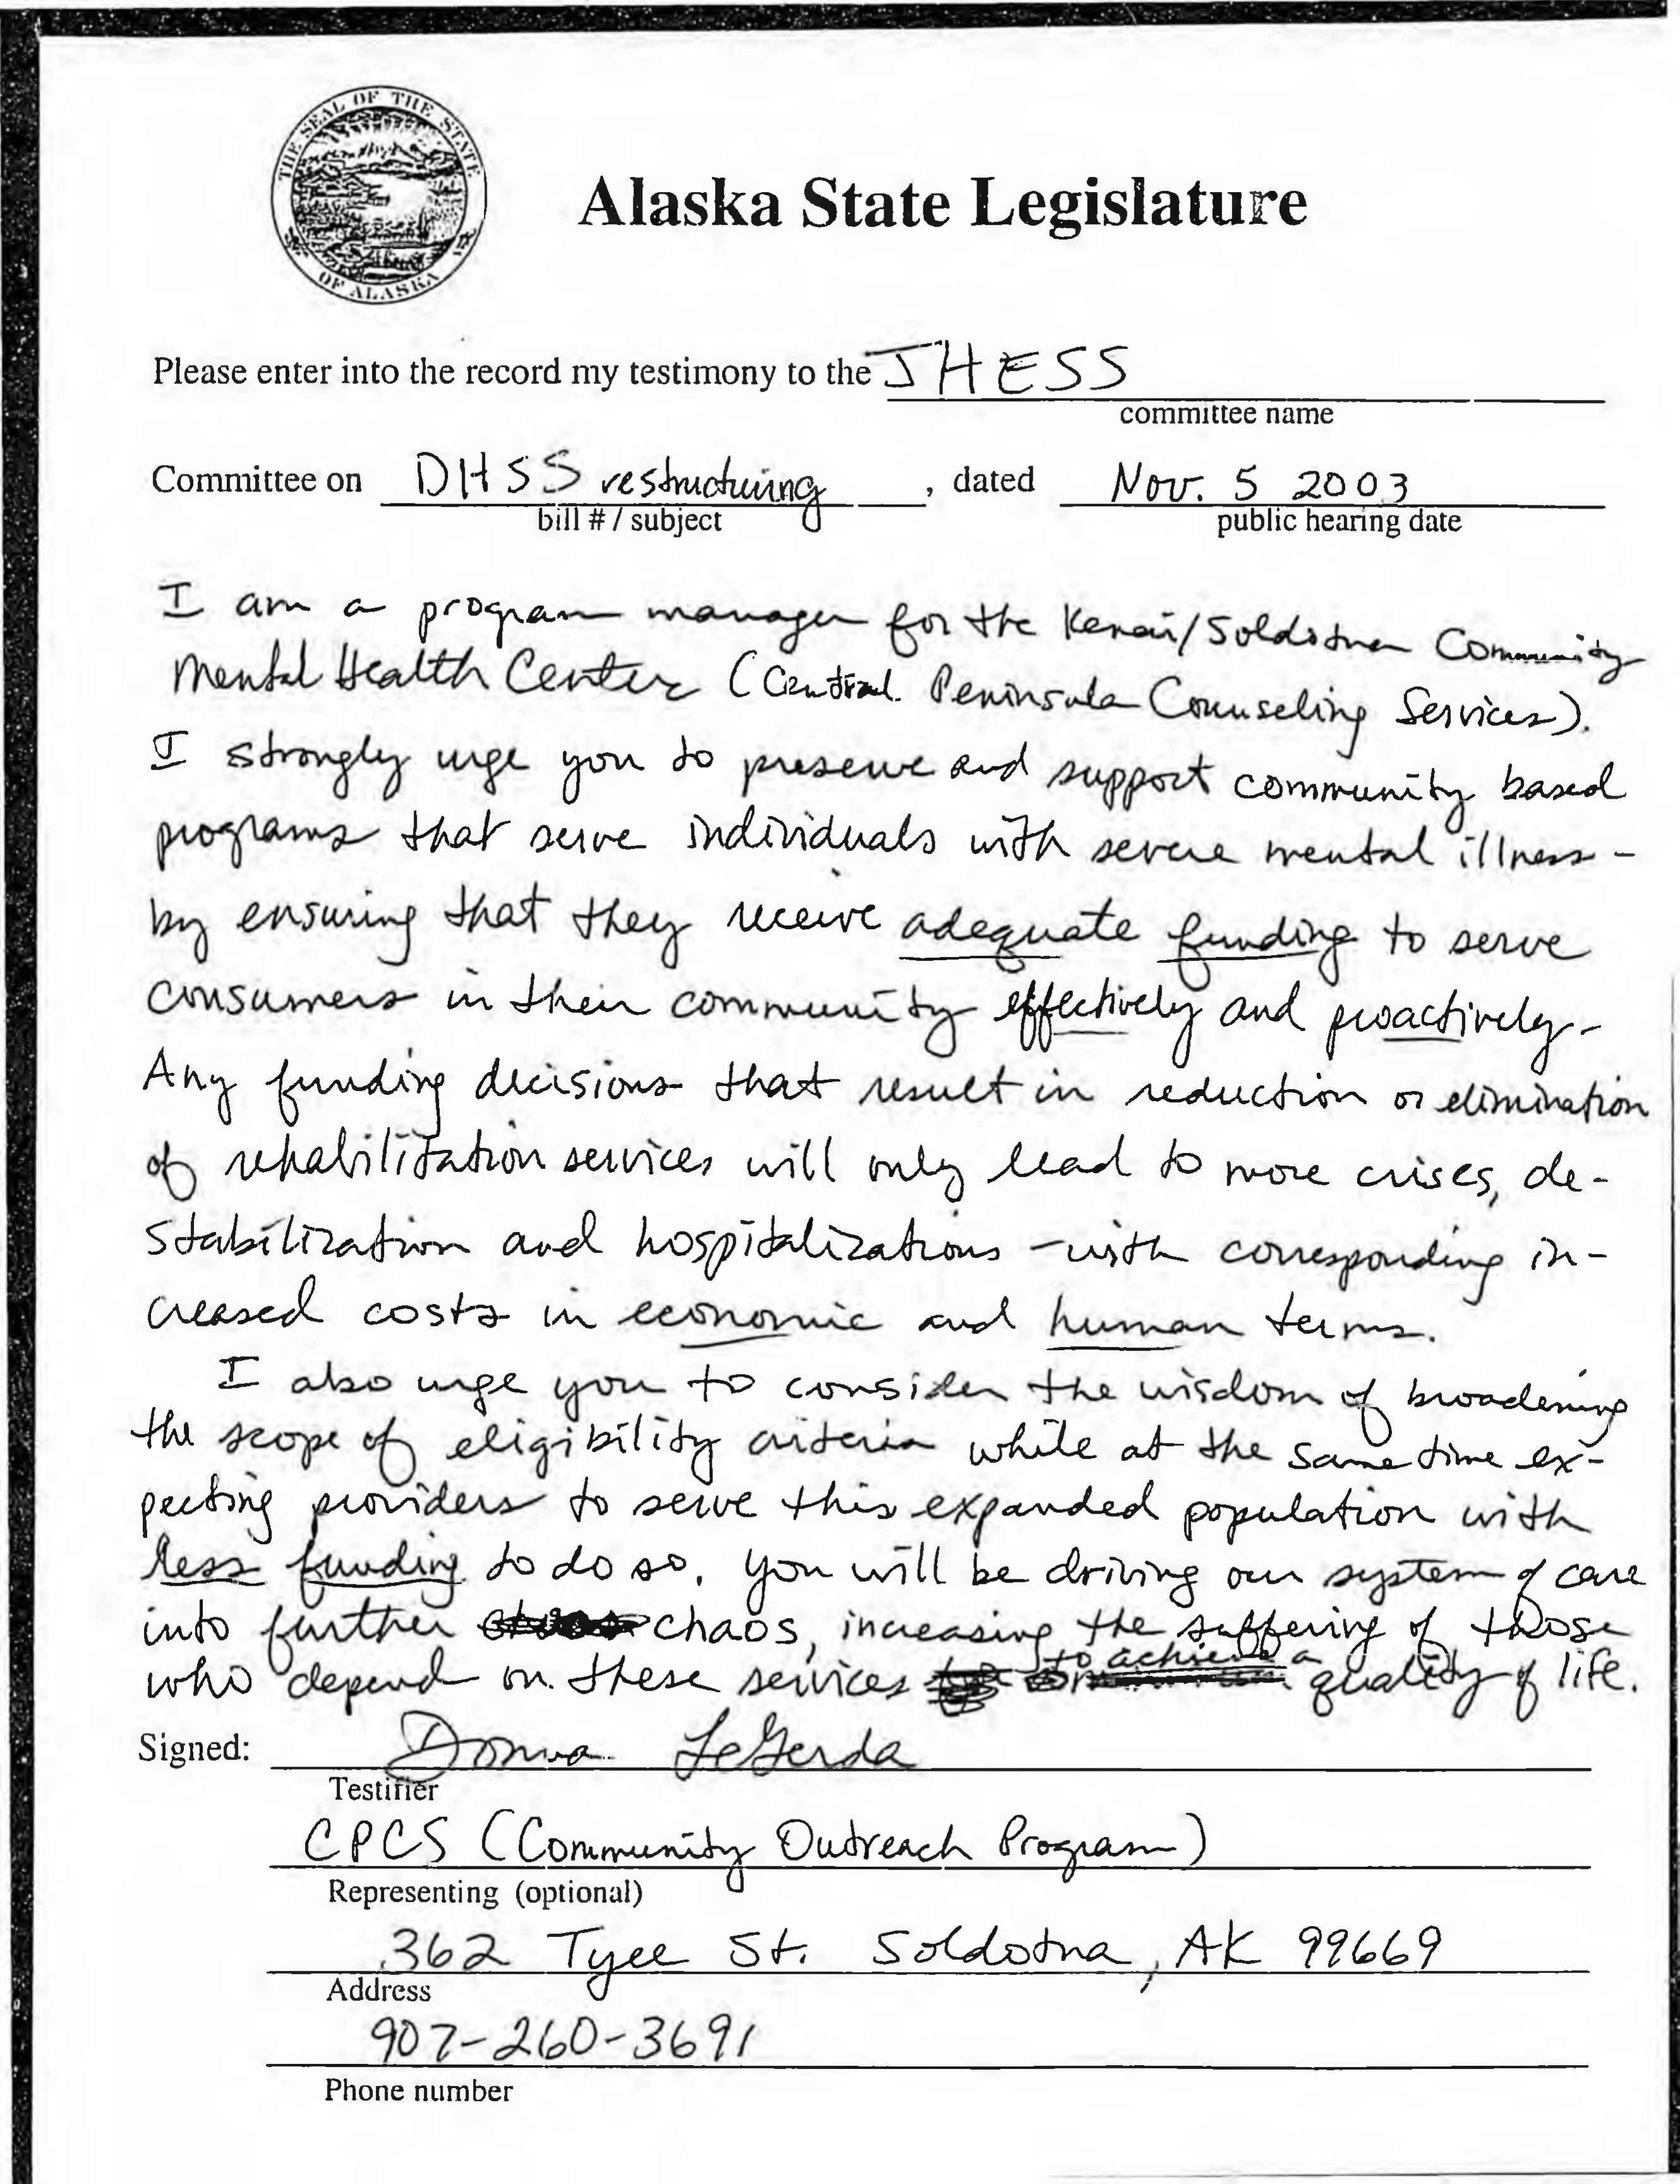 THE SEAL OF THE STATE
OF ALASKA
Alaska State Legislature
Please enter into the record my testimony to the JHESS
committee name
Committee on DHSS restructuring , dated Nov. 5 2003
bill # / subject public hearing date
I am a program manager for the Kenai/Soldotna Community
Mental Health Center (Central Peninsula Counseling Services).
I strongly urge you to preserve and support community based
programs that serve individuals with severe mental illness -
by ensuring that they receive adequate funding to serve
consumers in their community effectively and proactively.
Any funding decisions that result in reduction or elimination
of rehabilitation services will only lead to more crises, de-
stabilization and hospitalizations - with corresponding in-
creased costs in economic and human terms.
I also urge you to consider the wisdom of broadening
the scope of eligibility criteria while at the same time ex-
pecting providers to serve this expanded population with
less funding to do so. You will be driving our system of care
into further chaos, increasing the suffering of those
who depend on these services to achieve a quality of life.
Signed: Donna LeGerda
Testifier
CPCS (Community Outreach Program)
Representing (optional)
362 Tyee St. Soldotna, AK 99669
Address
907-260-3691
Phone number